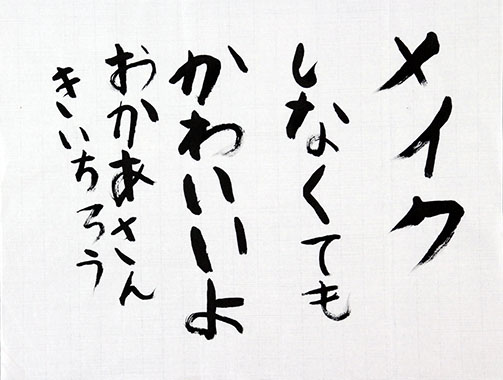 メイク
しなくても
かわいいよ
おかあさん
きいちろう